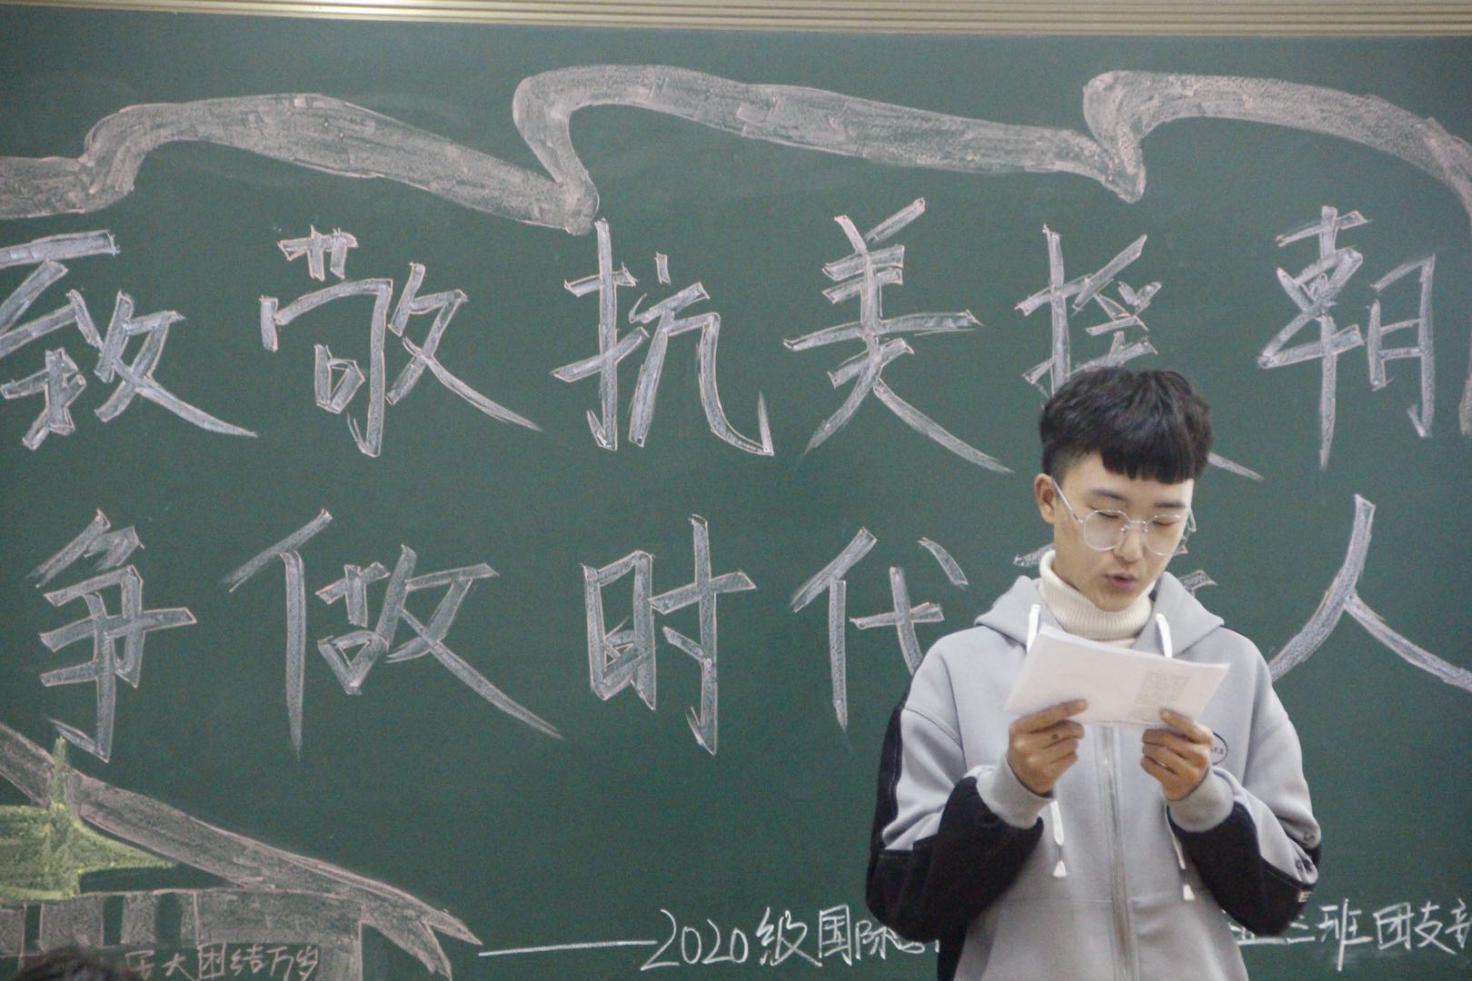 致敬抗美援朝
争做时代人
——2020级国际 三班团支部
大团结万岁